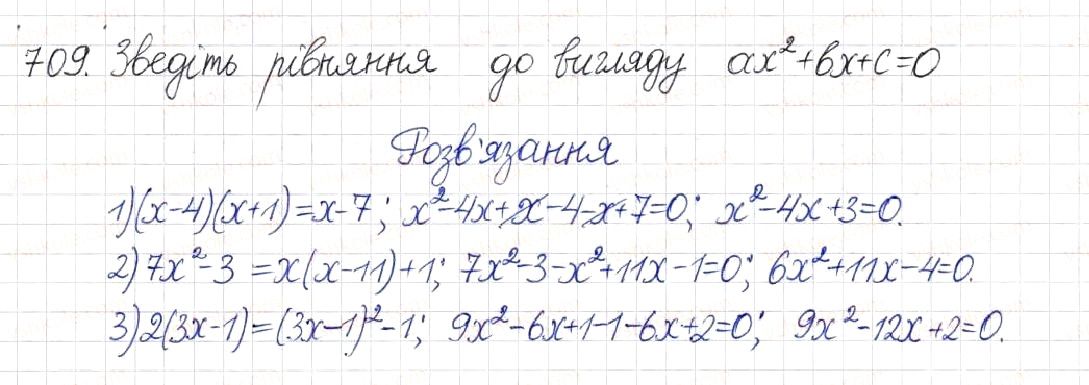 709. Зведіть рівняння до вигляду ax²+bx+c=0
Розв'язання
1)(x-4)(x+1)=x-7; x²-4x+x-4-x+7=0; x²-4x+3=0.
2) 7x²-3=x(x-11)+1; 7x²-3-x²+11x-1=0; 6x²+11x-4=0.
3) 2(3x-1)=(3x-1)²-1; 9x²-6x+1-1-6x+2=0; 9x²-12x+2=0.